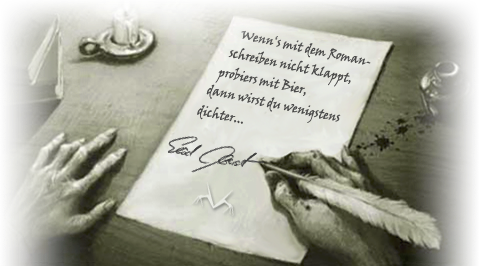 Wenn's mit dem Roman-
schreiben nicht klappt,
probiers mit Bier,
dann wirst du wenigstens
dichter...